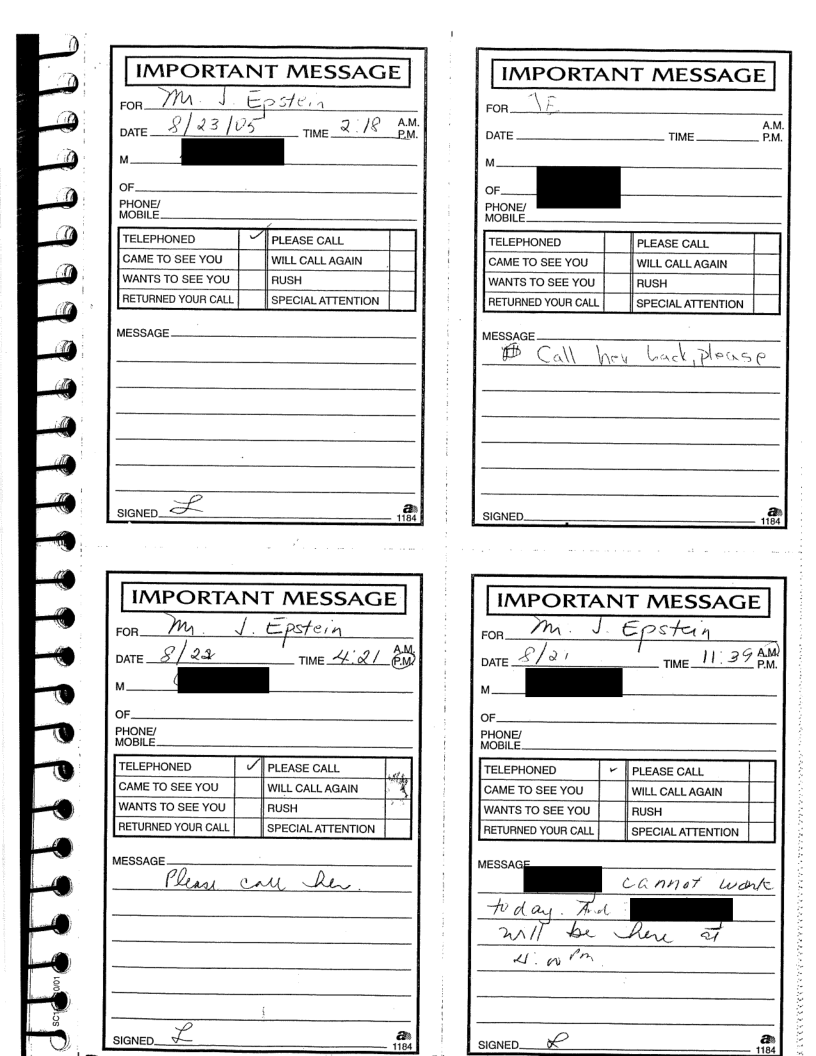 IMPORTANT MESSAGE
FOR Mr. J. Epstein
DATE 8/23/05 TIME 2:18 A.M. P.M.
M
OF
PHONE/
MOBILE
TELEPHONED ✓ PLEASE CALL
CAME TO SEE YOU WILL CALL AGAIN
WANTS TO SEE YOU RUSH
RETURNED YOUR CALL SPECIAL ATTENTION
MESSAGE
SIGNED L
1184
IMPORTANT MESSAGE
FOR JE
DATE TIME A.M. P.M.
M
OF
PHONE/
MOBILE
TELEPHONED PLEASE CALL
CAME TO SEE YOU WILL CALL AGAIN
WANTS TO SEE YOU RUSH
RETURNED YOUR CALL SPECIAL ATTENTION
MESSAGE
Call her back, please
SIGNED
1184
IMPORTANT MESSAGE
FOR Mr. J. Epstein
DATE 8/22 TIME 4:21 A.M. P.M.
M
OF
PHONE/
MOBILE
TELEPHONED ✓ PLEASE CALL
CAME TO SEE YOU WILL CALL AGAIN
WANTS TO SEE YOU RUSH
RETURNED YOUR CALL SPECIAL ATTENTION
MESSAGE
Please call her.
SIGNED L
1184
IMPORTANT MESSAGE
FOR Mr. J. Epstein
DATE 8/21 TIME 11:39 A.M. P.M.
M
OF
PHONE/
MOBILE
TELEPHONED ✓ PLEASE CALL
CAME TO SEE YOU WILL CALL AGAIN
WANTS TO SEE YOU RUSH
RETURNED YOUR CALL SPECIAL ATTENTION
MESSAGE
cannot work
today. And
will be here at
4:00 Pm.
SIGNED L
1184